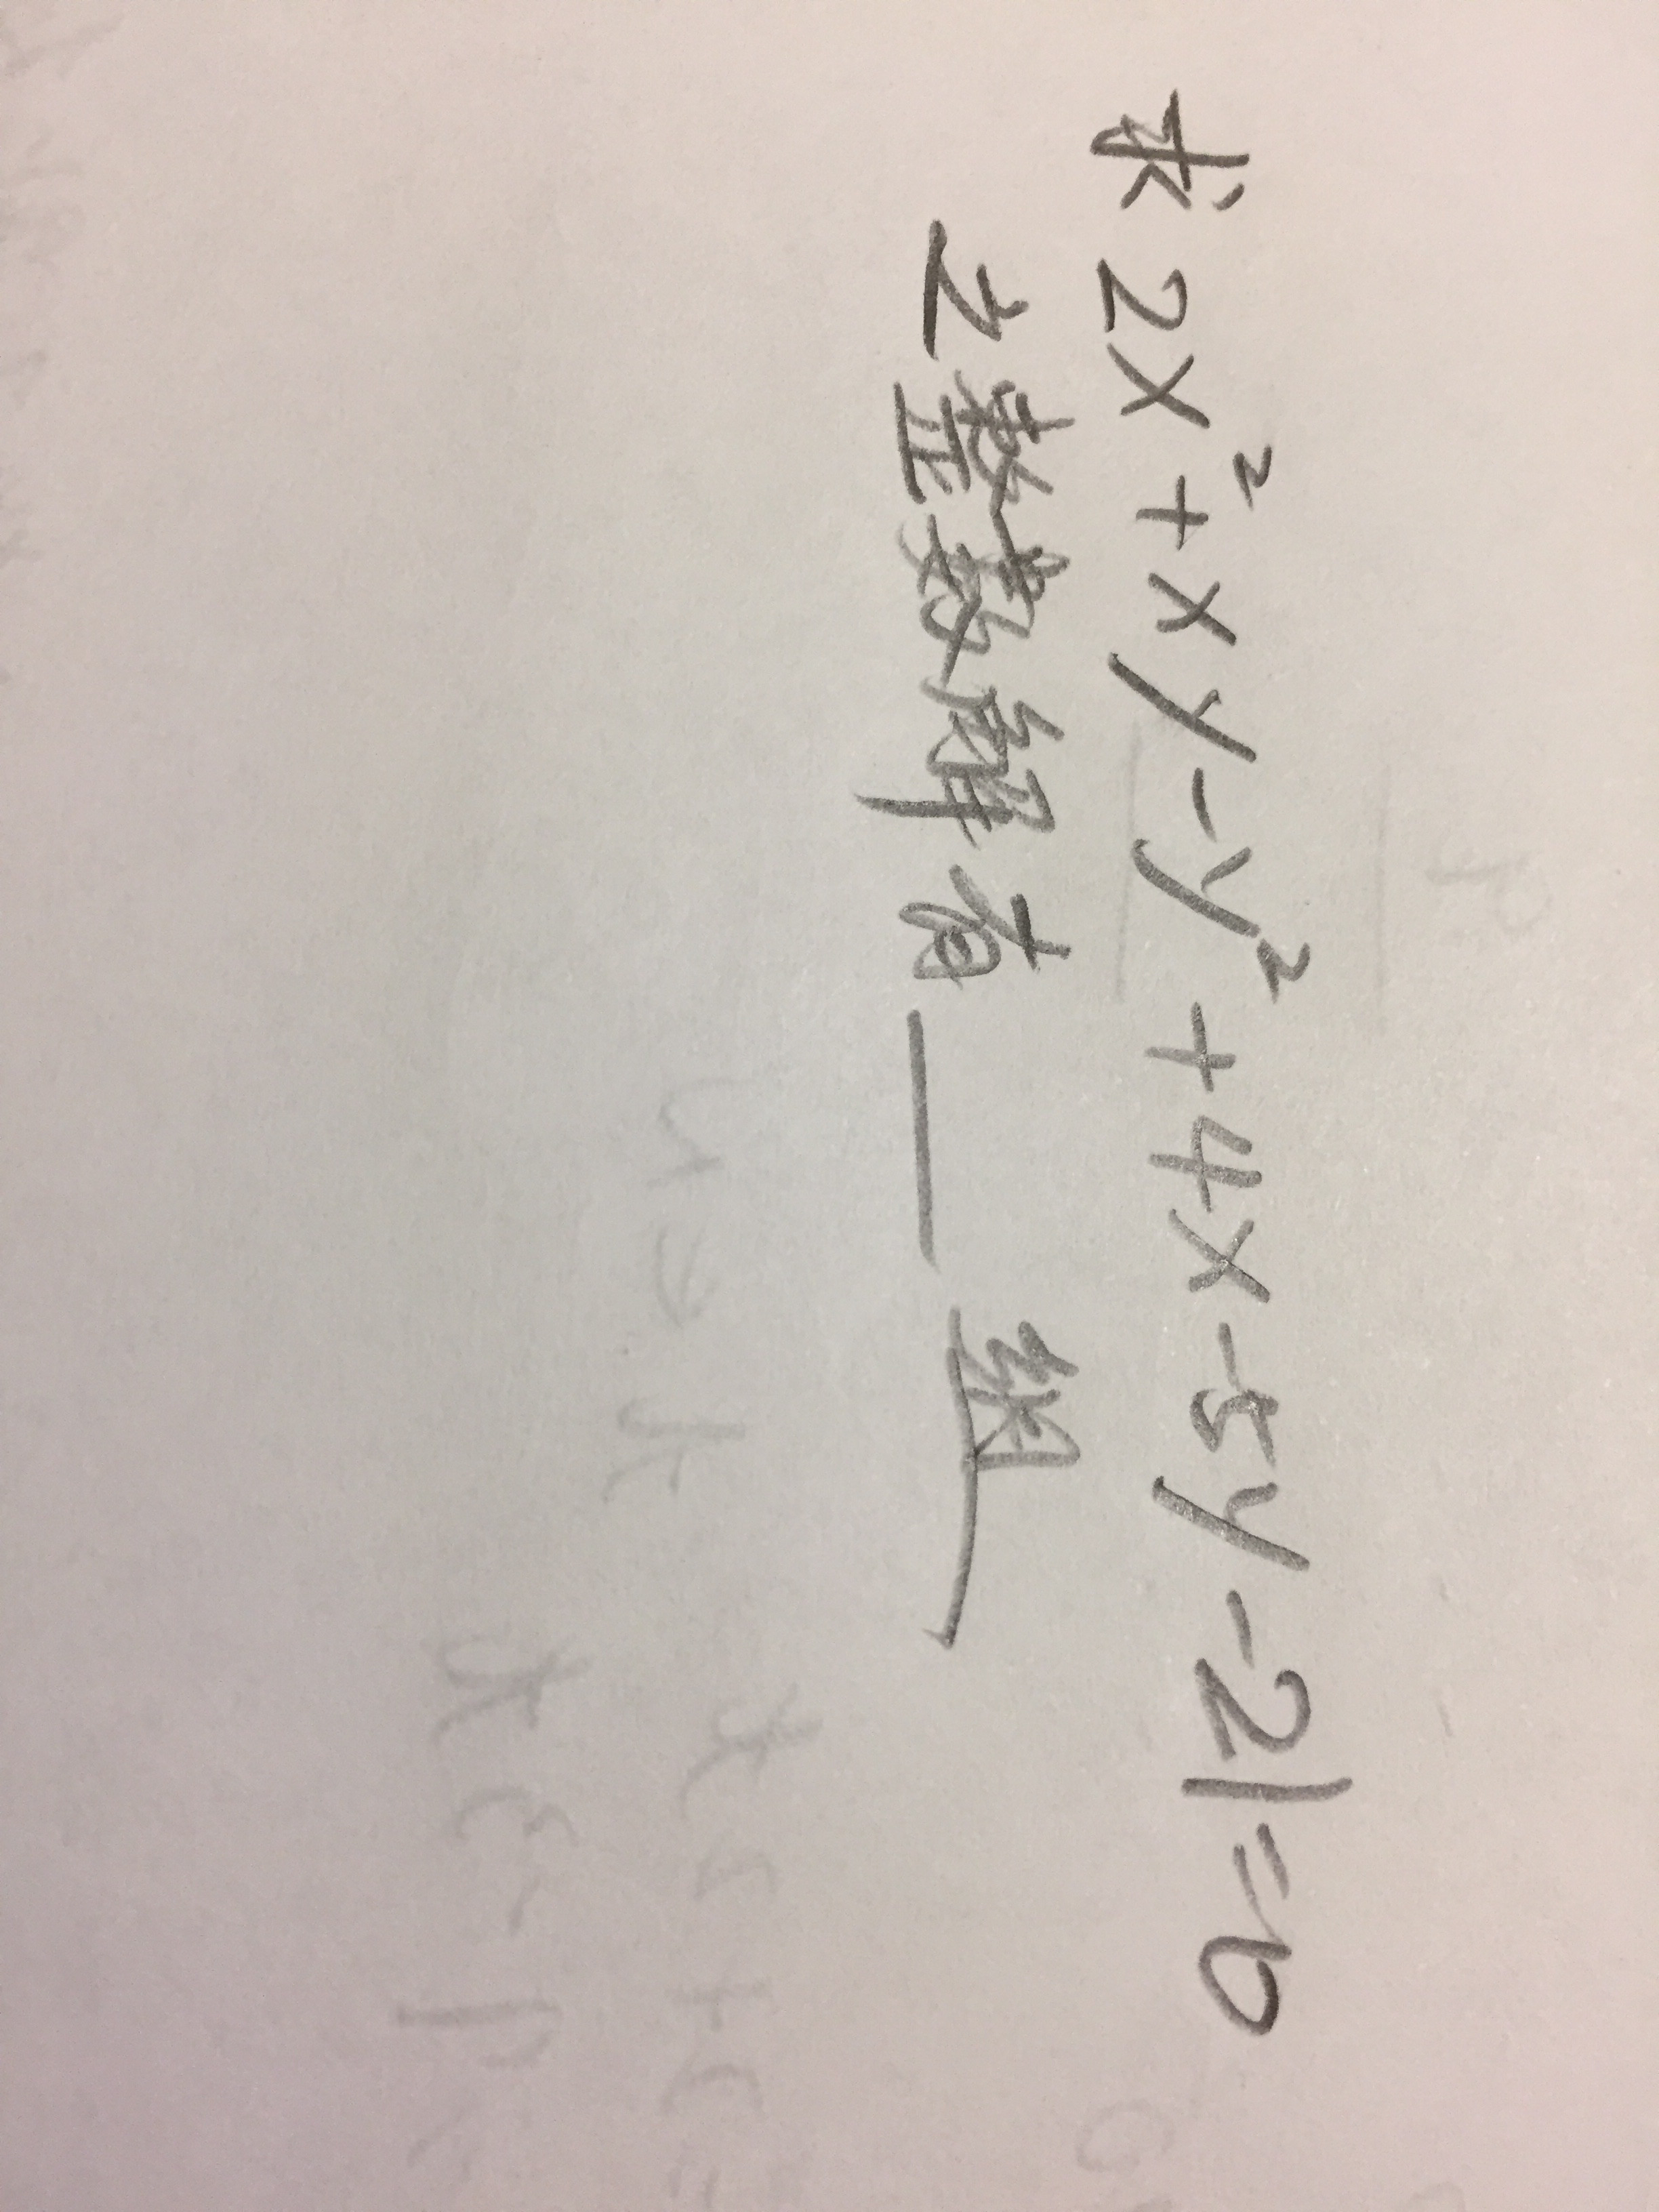 求2x²+xy-y²+4x-5y-21=0
之整數解有___組